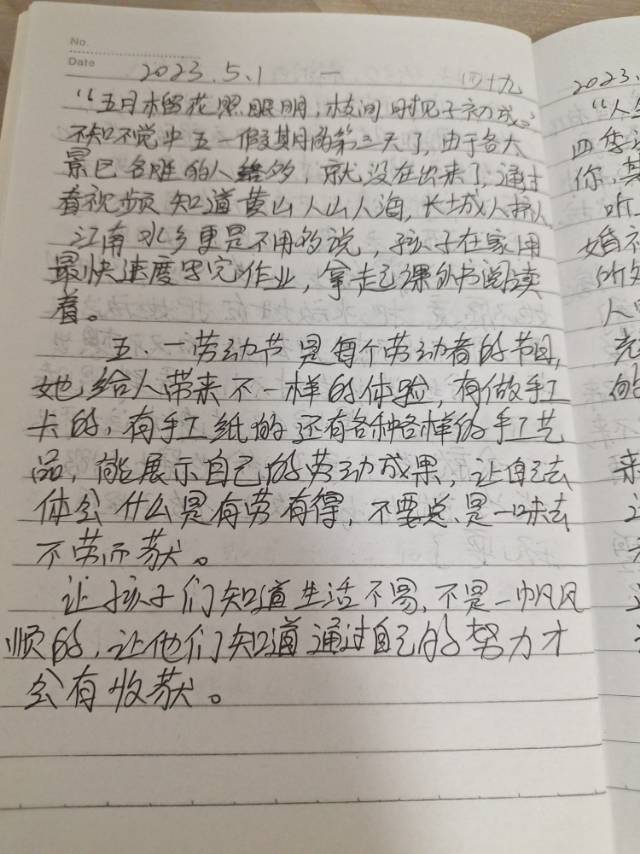 No.
Date
2023.5.1 一 四十九
2023.
“五月榴花照眼明,枝间时见子初成”
不知不觉中五一假期的第三天了,由于各大
景已名胜的人较多,就没在出来了,通过
看视频知道黄山人山人海,长城人挤人
江南水乡更是不用多说,孩子在家用
最快速度写完作业,拿起课外书阅读
着。
五.一劳动节是每个劳动者的节日,
她给人带来不一样的体验,有做手工
卡的,有手工纸的还有各种各样的手工艺
品,能展示自己的劳动成果,让自己去
体会什么是有劳有得,不要总是一味去
不劳而获。
让孩子们知道生活不易,不是一帆风
顺的,让他们知道通过自己的努力才
会有收获。
“人
四季
你,其
听
婚礼
所
人
充
的
来